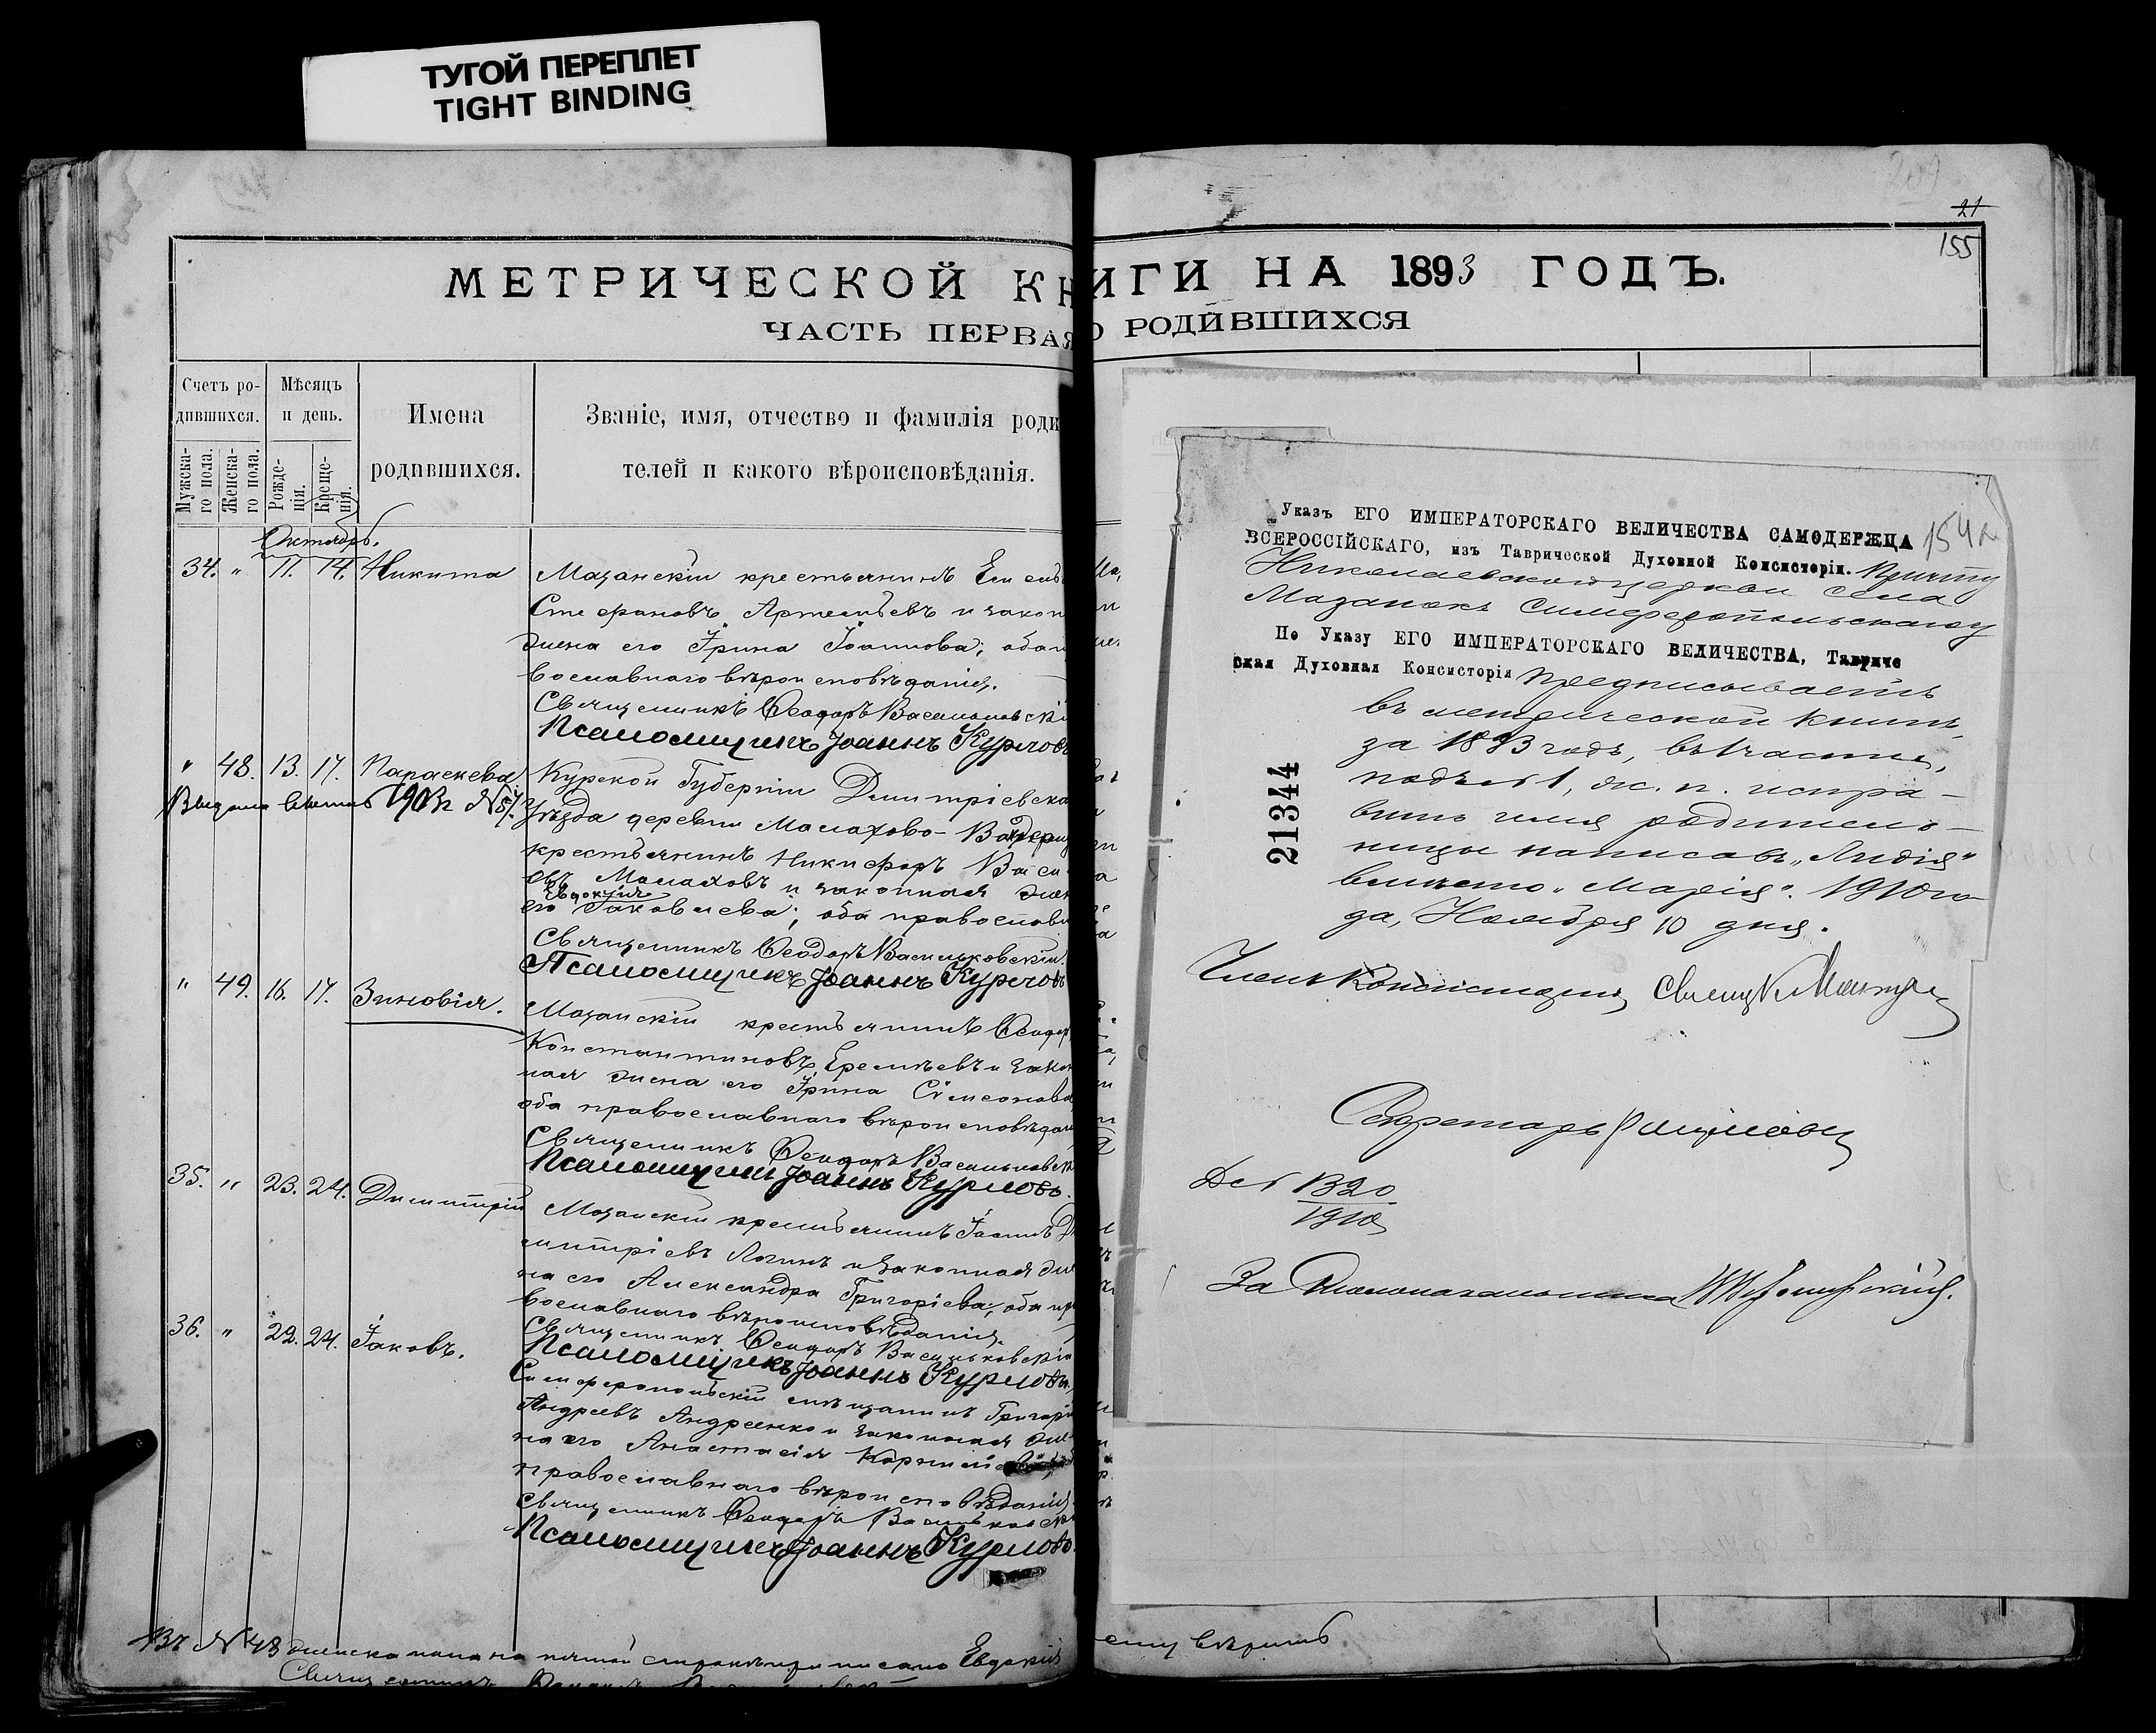 ТУГОЙ ПЕРЕПЛЕТ
TIGHT BINDING
МЕТРИЧЕСКОЙ КН
ЧАСТЬ ПЕРВАЯ
Счетъ ро-
дившихся.
Мѣсяцъ
и день.
Имена
родившихся.
Званіе, имя, отчество и фамилія роди
телей и какого вѣроисповѣданія.
Мужска-
го пола.
Женска-
го пола.
Рожде-
нія.
Креще-
нія.
Октябрь.
34. " 11. 14. Никита
Мазанскій крестьянинъ Елисѣ
Стефановъ Артемьевъ и закон
жена его Ірина Іоаннова; оба п
вославнаго вѣроисповѣданія.
Священникъ Ѳеодоръ Васильковскі
Псаломщикъ Іоаннъ Курловъ
" 48. 13. 17. Параскева
Выдана 1903 г № 51.
Курской Губерніи Дмитріевска
Уѣзда деревни Малахово-
крестьянинъ Никифоръ Васи
евъ Малаховъ и законная жен
Евдокія
его Іаковлева; оба православн
Священникъ Ѳеодоръ Васильковскій.
Псаломщикъ Іоаннъ Курловъ
" 49. 16. 17. Зиновія.
Мазанскій крестьянинъ Ѳеодор
Константиновъ Еремѣевъ и закон
ная жена его Ірина Сімеонова
оба православнаго вѣроисповѣдан
Священникъ Ѳеодоръ Васильковск
Псаломщикъ Іоаннъ Курловъ.
35. " 23. 24. Димитрій
Мазанскій крестьянинъ Іоаннъ Ди
митріевъ Логинъ и законная же
на его Александра Григоріева; оба пра
вославнаго вѣроисповѣданія.
Священникъ Ѳеодоръ Васильковскій
Псаломщикъ Іоаннъ Курловъ.
36. " 22. 24. Іаковъ.
Симферопольскій мѣщанинъ Григорі
Андреевъ Андреенко и законная же
на его Анастасія
православнаго вѣроисповѣданія
Священникъ Ѳеодоръ Васильковск
Псаломщикъ Іоаннъ Курловъ.
Въ № 48 женска пола на пятой строкѣ приписано Евдокія
Священникъ
ИГИ НА 1893 ГОДЪ.
О РОДИВШИХСЯ
21
155
154а
Указъ ЕГО ИМПЕРАТОРСКАГО ВЕЛИЧЕСТВА САМОДЕРЖЦА
ВСЕРОССІЙСКАГО, изъ Таврической Духовной Консисторіи. Причту
Николаевской церкви села
Мазанокъ Симферопольскаго у
По Указу ЕГО ИМПЕРАТОРСКАГО ВЕЛИЧЕСТВА, Тавриче
ская Духовная Консисторія предписываетъ
въ метрической книгѣ,
за 1893 годъ, въ 1 части,
подъ № 1, ж. п. испра-
вить имя родитель-
ницы написавъ „Лидія"
вмѣсто „Марія". 1910 го-
да, Ноября 10 дня.
21344
Членъ Консисторіи, Священ
Секретарь
1320
1910
За Столоначальника
ему вѣрить